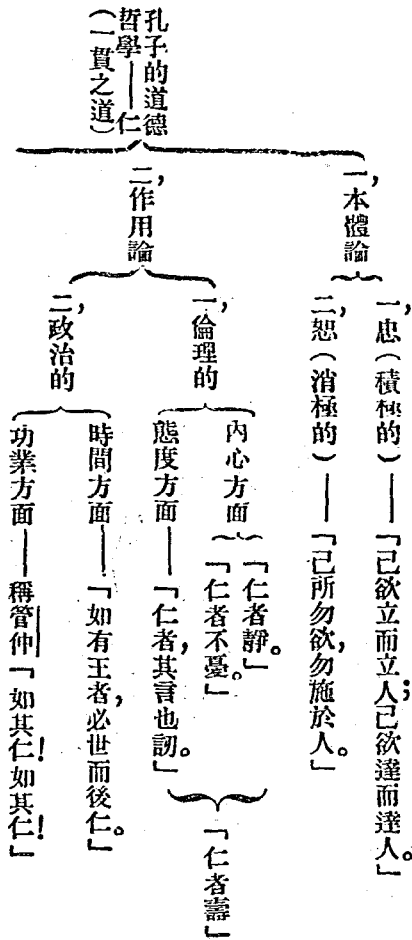 孔子的道德
哲學——仁
(一貫之道)
一,本體論
一,忠(積極的)——「己欲立而立人;己欲達而達人。」
二,恕(消極的)——「己所勿欲,勿施於人。」
二,作用論
一,倫理的
內心方面
「仁者靜。」
「仁者不憂。」
態度方面——「仁者,其言也訒。」
「仁者壽」
二,政治的
時間方面——「如有王者,必世而後仁。」
功業方面——稱管仲「如其仁!如其仁!」